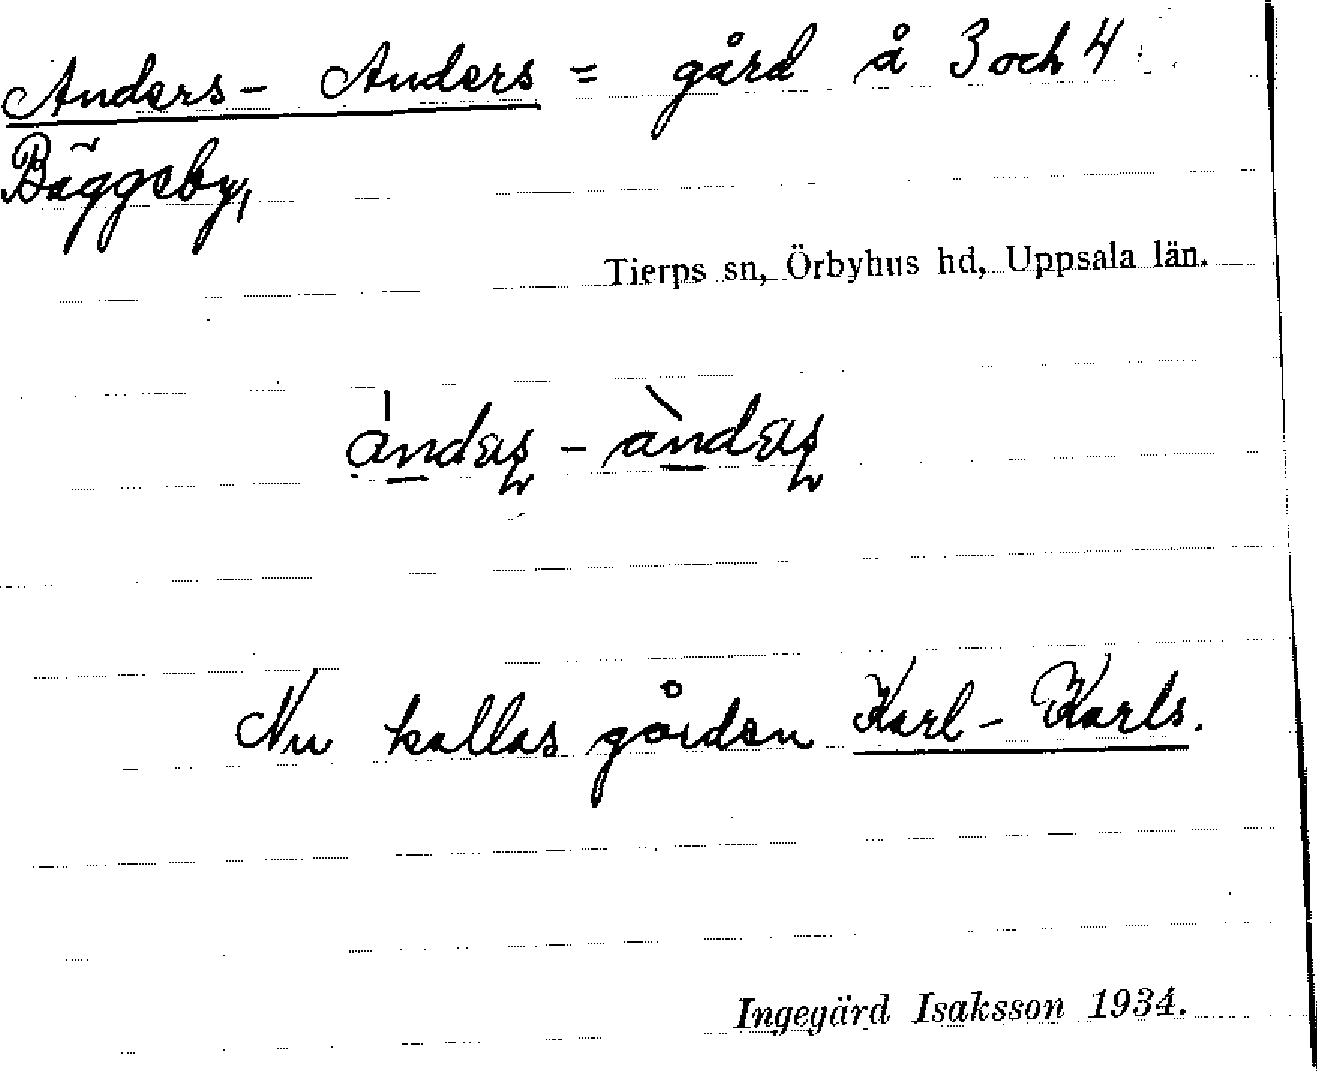 Anders- Anders = gård å 3 och 4
Bäggeby,
Tierps sn, Örbyhus hd, Uppsala län.
Nu kallas gården Karl - Karls.
Ingegärd Isaksson 1934.